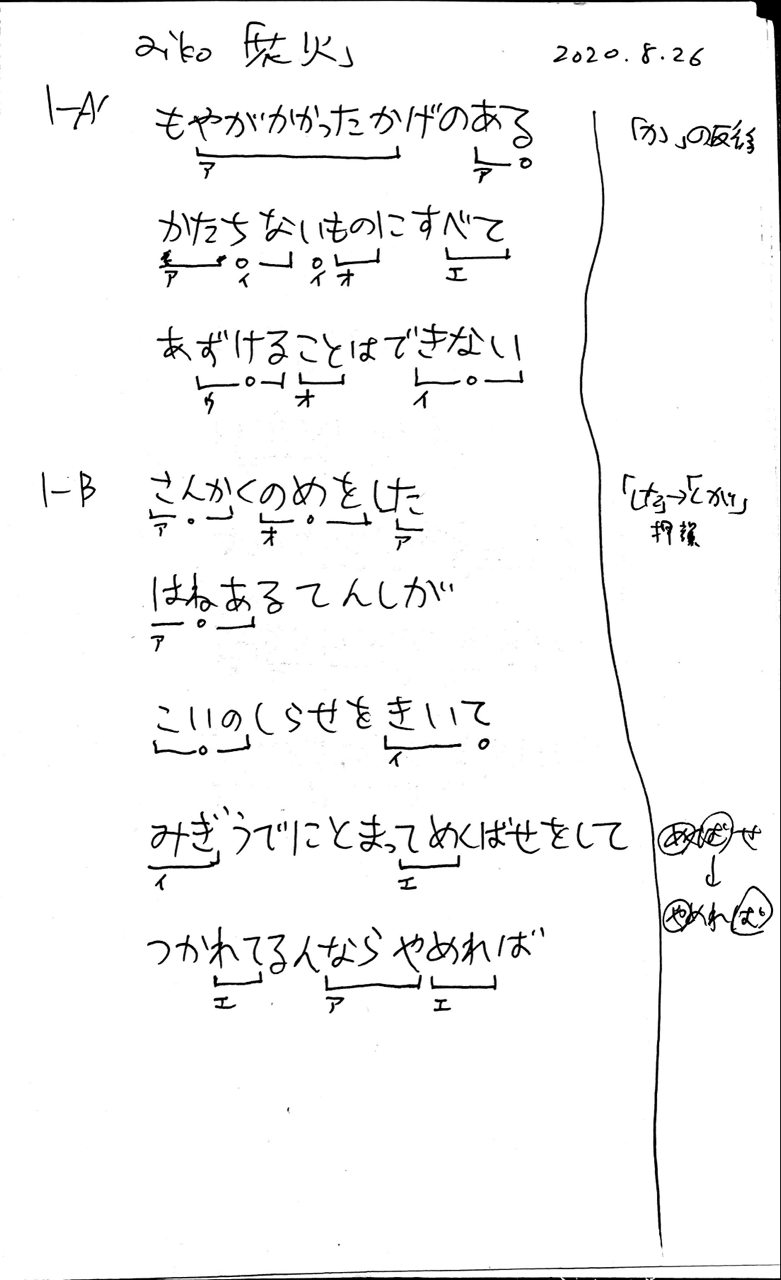 aiko 「花火」 2020.8.26
1-A'
もやがかかったかげのある 「か」の反復
ア ア
かたちないものにすべて
ア イ イ オ エ
あずけることはできない
ウ オ イ
1-B
さんかくのめをした 「した」→「しが」
ア オ ア 押韻
はねあるてんしが
ア
こいのしらせをきいて
イ
みぎうでにとまってめくばせをして
イ エ
↓
やめれば
つかれてるんならやめれば
エ ア エ